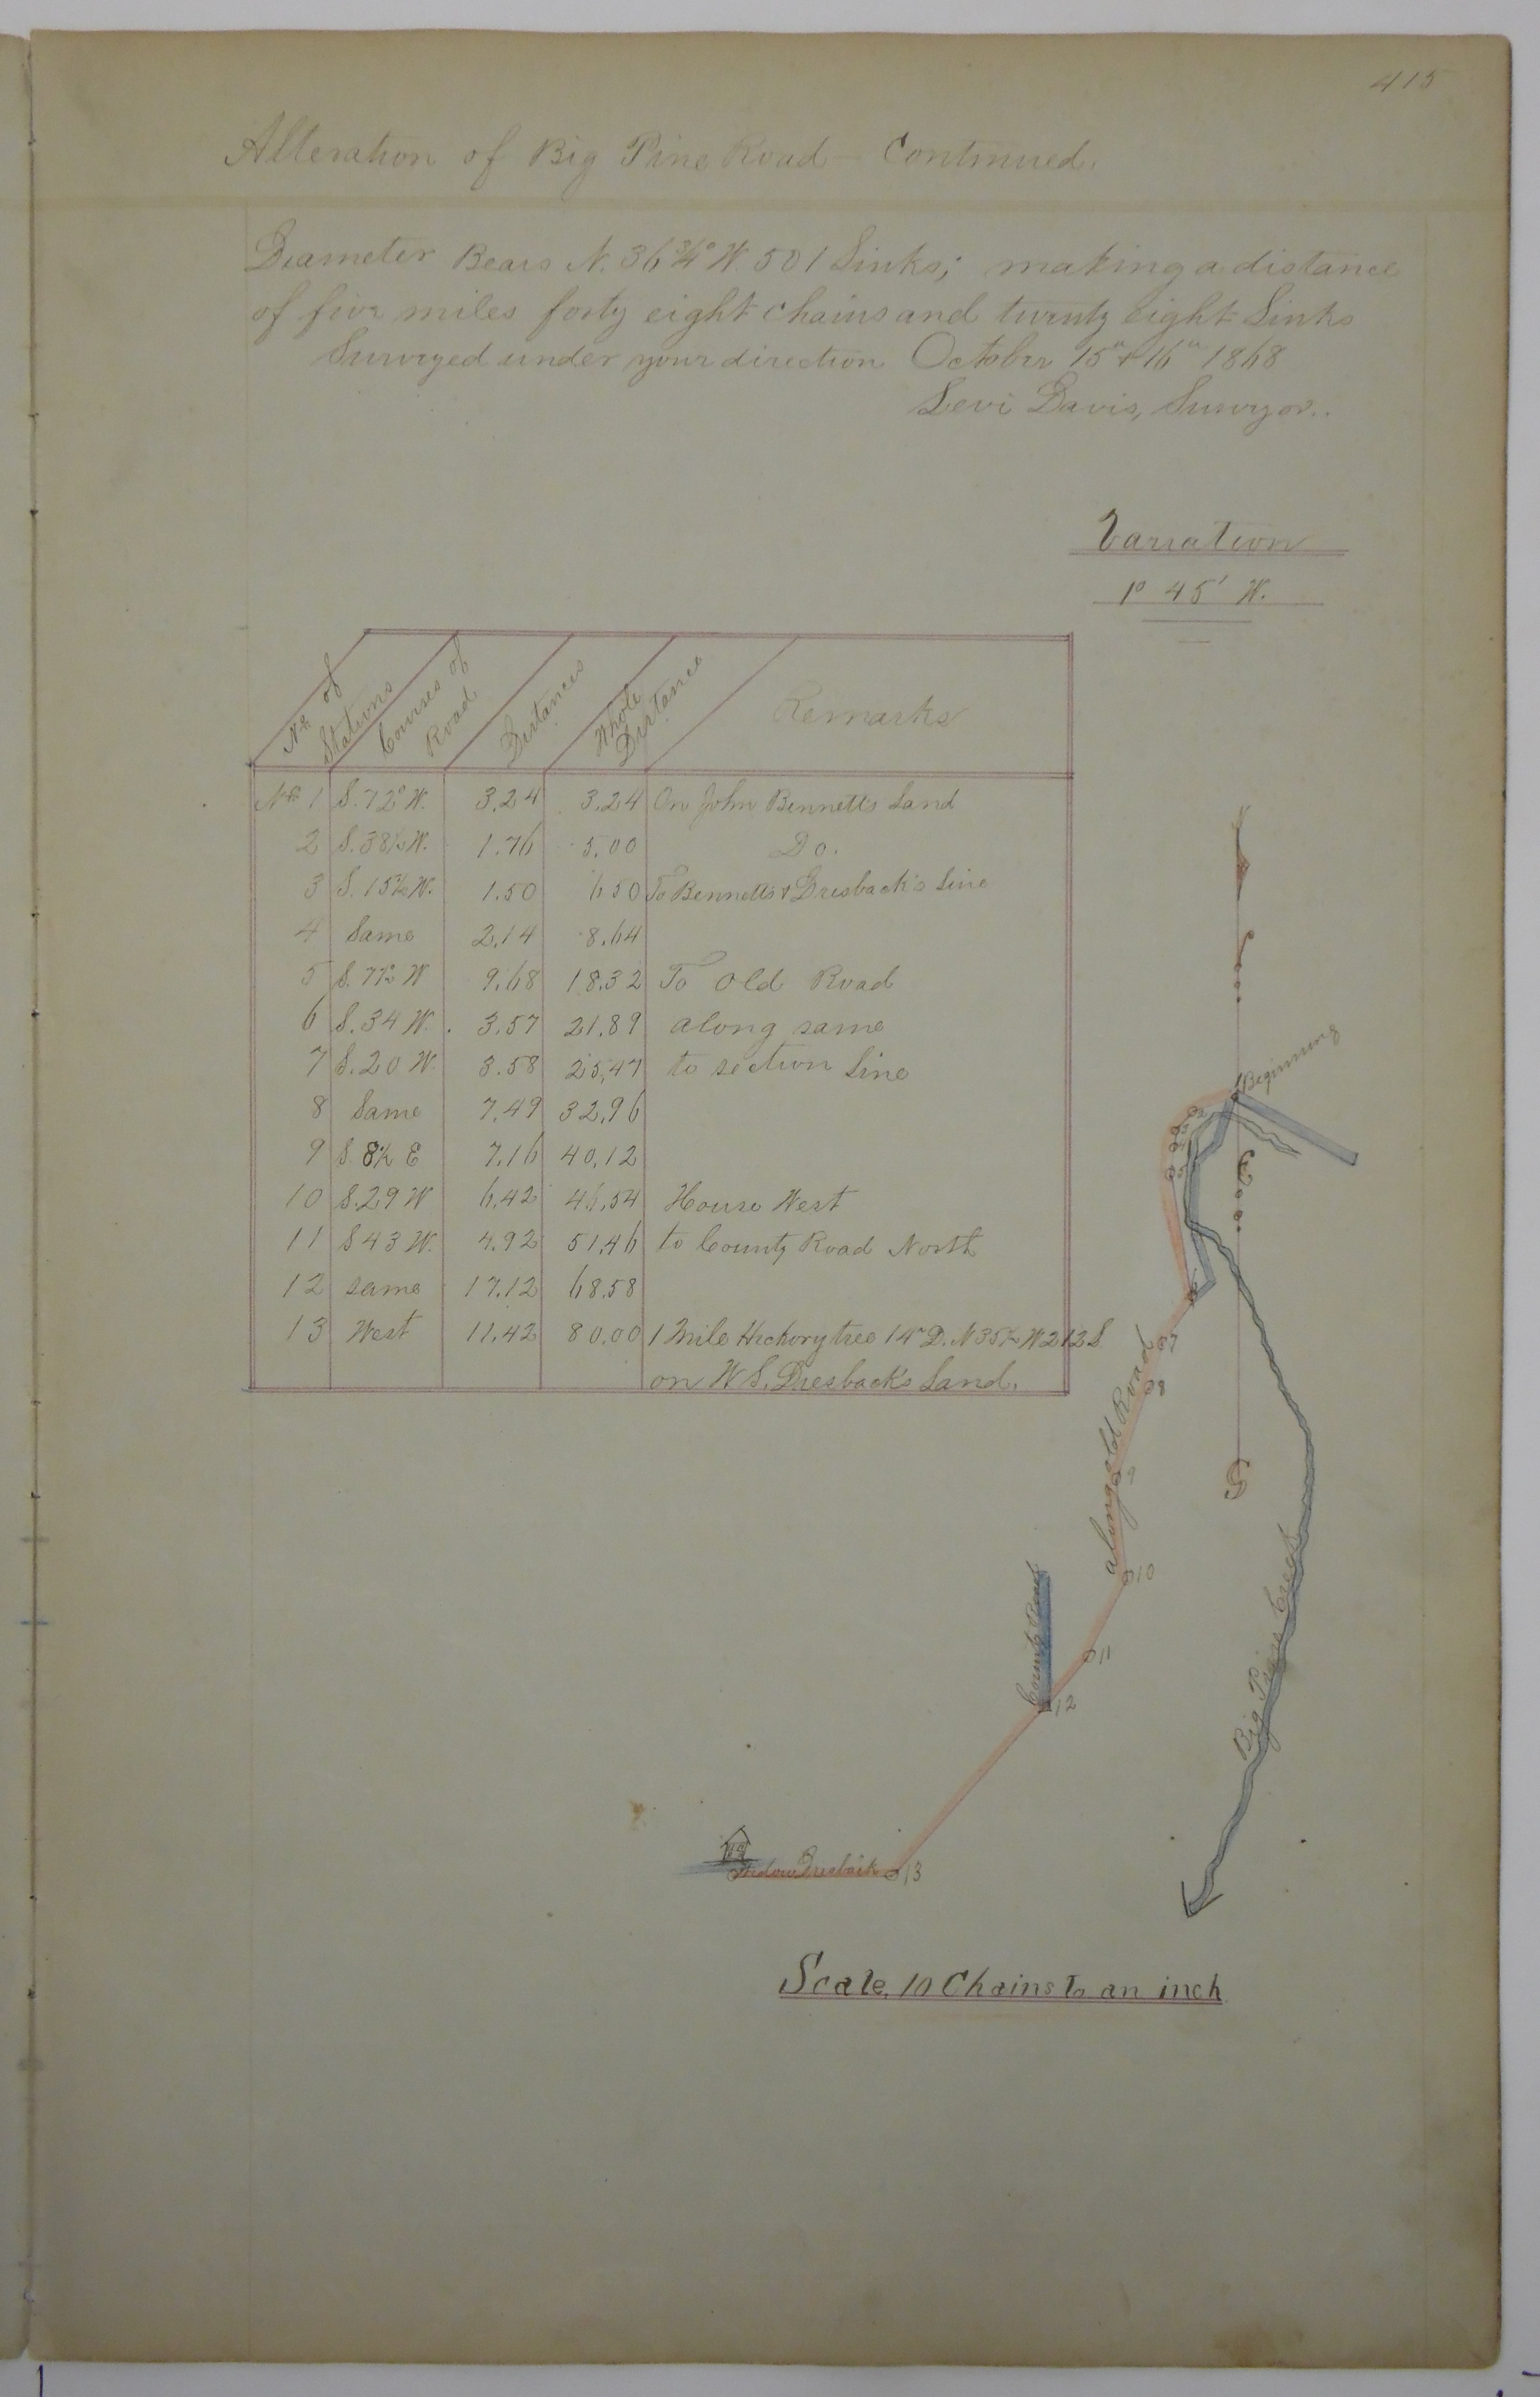 415
Alteration of Big Pine Road - Continued.
Diameter Bears N. 36¾° W. 501 Links; making a distance
of five miles forty eight chains and twenty eight Links
Surveyed under your direction October 15" & 16" 1868
Levi Davis, Surveyor.
Variation
1° 45' W.
No. of Stations | Courses of Road | Distances | Whole Distance | Remarks
No. 1 | S. 72° W. | 3.24 | 3.24 | On John Bennett's Land
2 | S. 38½ W. | 1.76 | 5.00 | Do.
3 | S. 15½ W. | 1.50 | 6.50 | To Bennetts & Dresback's Line
4 | Same | 2.14 | 8.64
5 | S. 7½ W | 9.68 | 18.32 | To Old Road
6 | S. 34 W. | 3.57 | 21.89 | along same
7 | S. 20 W. | 3.58 | 25.47 | to section Line
8 | Same | 7.49 | 32.96
9 | S. 8½ E | 7.16 | 40.12
10 | S. 29 W | 6.42 | 46.54 | House West
11 | S 43 W. | 4.92 | 51.46 | to County Road North
12 | same | 17.12 | 68.58
13 | West | 11.42 | 80.00 | 1 Mile Hickory tree 14" D. N 35½ W 212 L
on W S. Dresback's Land.
Beginning
1
2
3
4
5
6
7
8
along old Road
9
10
County Road
11
12
Big Pine Creek
S
Widow Dresback
13
Scale. 10 Chains to an inch